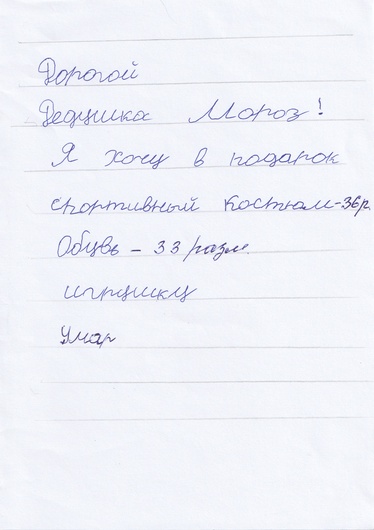 Дорогой
Дедушка Мороз!
Я хочу в подарок
спортивный костюм-36р.
Обувь - 33 разм.
игрушку
Умар